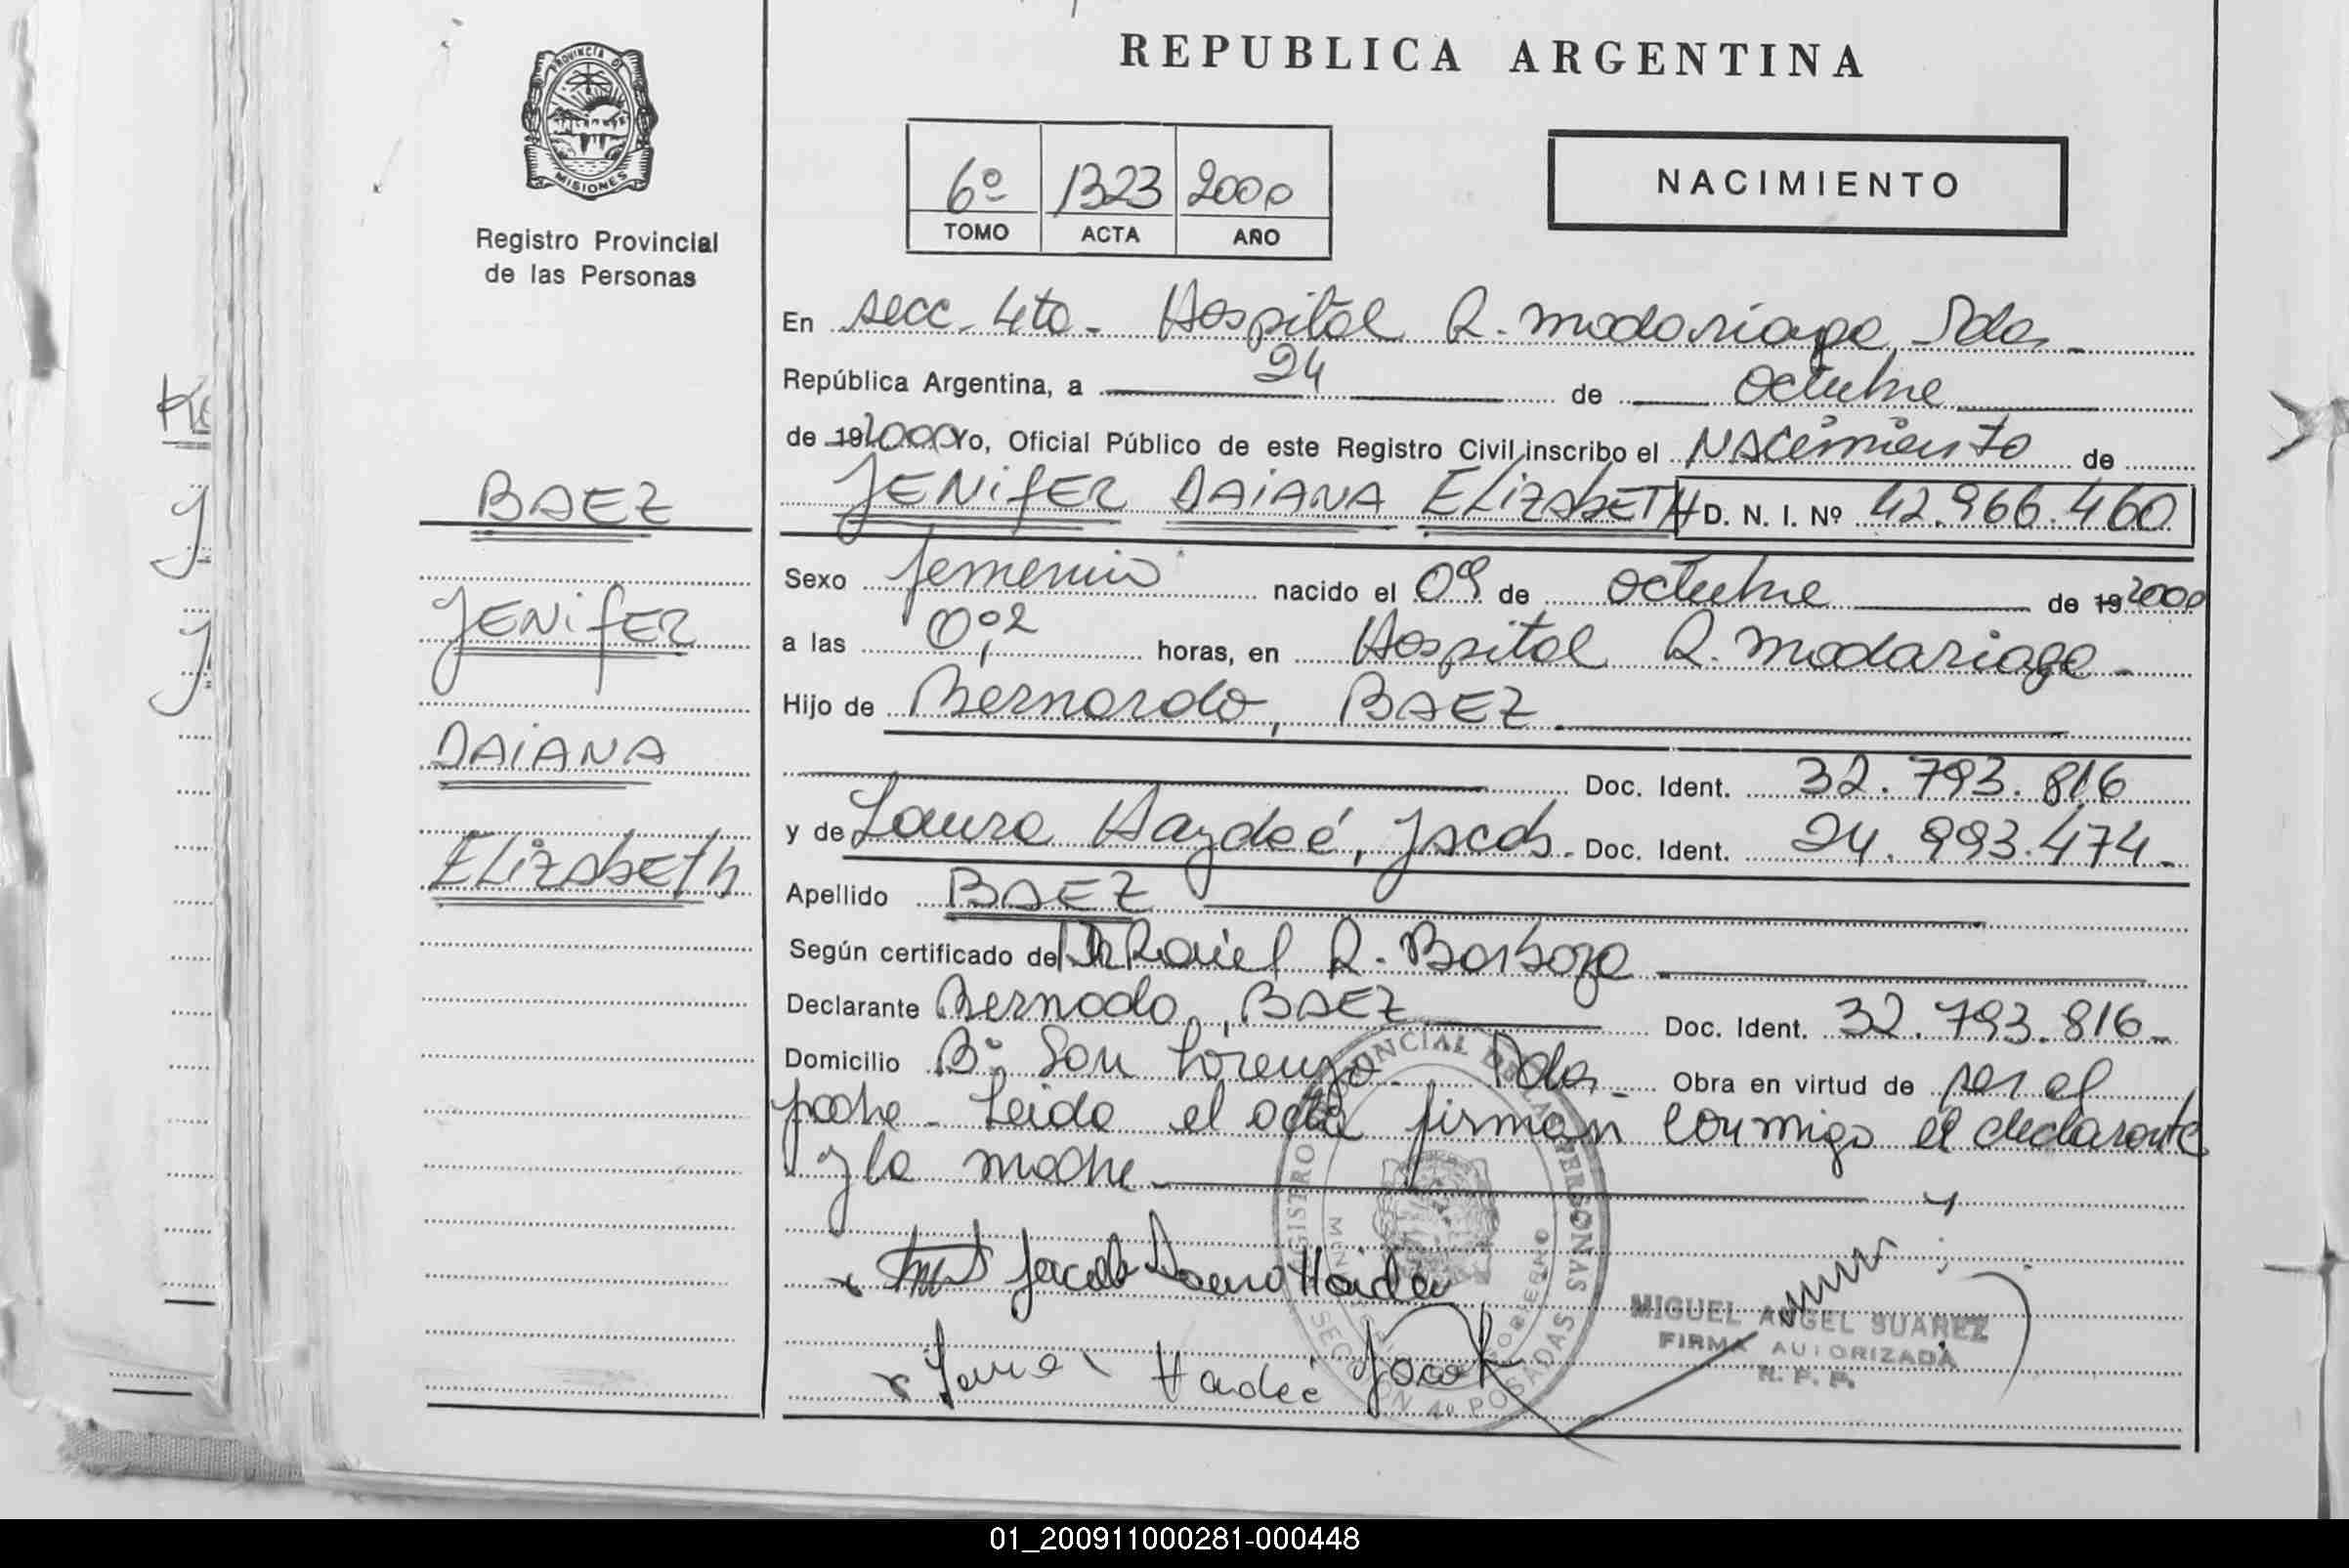 PROVINCIA DE
MISIONES
Registro Provincial
de las Personas
BAEZ
JENifER
DAiANA
ELizabETh
REPUBLICA ARGENTINA
6º 1323 2000
TOMO ACTA AÑO
NACIMIENTO
En secc. 4ta. Hospital R. Madariaga Pdas.
República Argentina, a 24 de octubre
de 19 2000 Yo, Oficial Público de este Registro Civil inscribo el NACimiento de
JENifER DAiANA ELizabETH D. N. I. Nº 42.966.460
Sexo femenino nacido el 09 de octubre de 19 2000
a las 0,02 horas, en Hospital R. Madariaga
Hijo de Bernardo, BAEZ
Doc. Ident. 32.793.816
y de Laura Haydeé, Jacob. Doc. Ident. 24.993.474
Apellido BAEZ
Según certificado de Dr R. Barboza
Declarante Bernado, BAEZ Doc. Ident. 32.793.816
Domicilio Bº San Lorenzo. Pdas. Obra en virtud de ser el
padre. Leida el acta firman conmigo el declarante
y la madre
Jacob Laura Haidee
Haideé Jacob
REGISTRO PROVINCIAL DE LAS PERSONAS
SECCION 4º POSADAS
MIGUEL ANGEL SUAREZ
FIRMA AUTORIZADA
R. P. P.
01_200911000281-000448